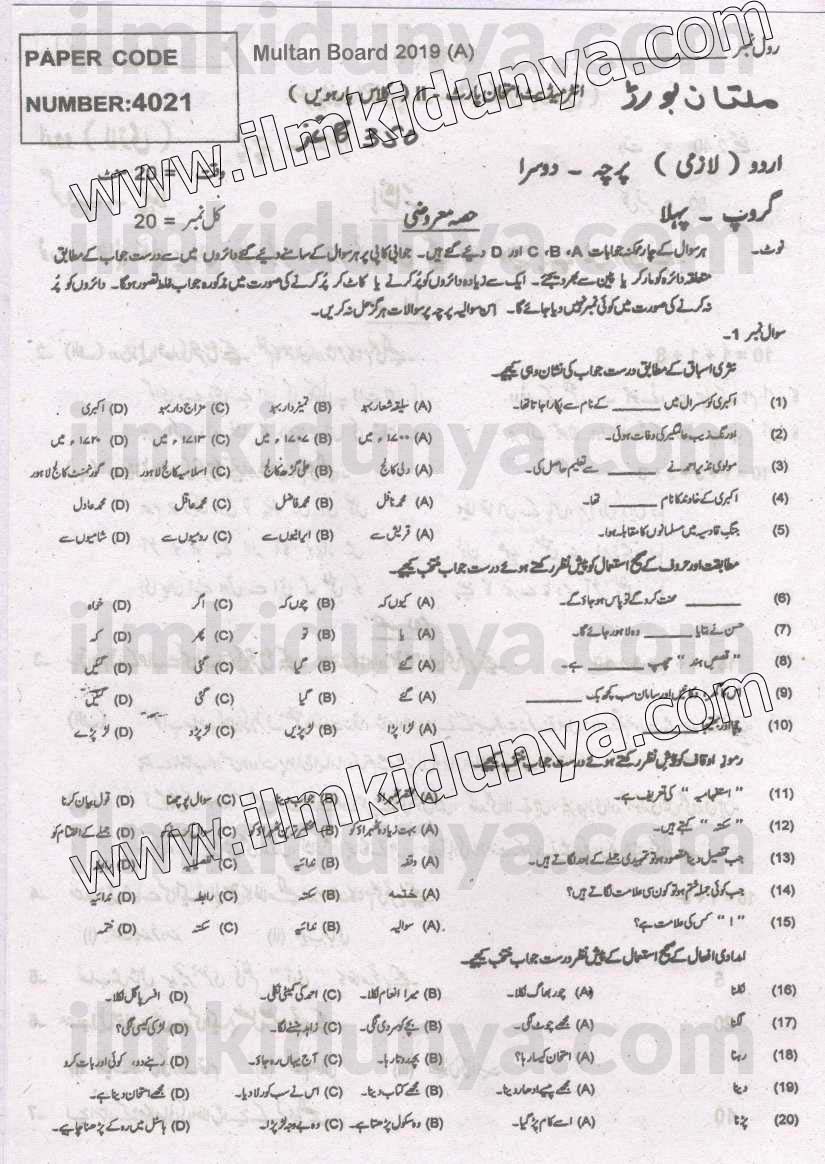 PAPER CODE
NUMBER:4021
Multan Board 2019 (A)
رول نمبر
ملتان بورڈ
انٹرمیڈیٹ امتحان پارٹ - II ( کلاس بارہویں )
اردو ( لازمی ) پرچہ - دوسرا
وقت = 20 منٹ
گروپ - پہلا
حصہ معروضی
کل نمبر = 20
نوٹ۔ ہر سوال کے چار ممکنہ جوابات A ، B ، C اور D دیئے گئے ہیں۔ جوابی کاپی پر ہر سوال کے سامنے دیئے گئے دائروں میں سے درست جواب کے مطابق
متعلقہ دائرہ کو مارکر یا پین سے بھر دیجئے۔ ایک سے زیادہ دائروں کو پُر کرنے یا کاٹ کر پُر کرنے کی صورت میں مذکورہ جواب غلط تصور ہوگا۔ دائروں کو پُر
نہ کرنے کی صورت میں کوئی نمبر نہیں دیا جائے گا۔ اس سوالیہ پرچہ پر سوالات ہرگز حل نہ کریں۔
سوال نمبر 1۔
نثری اسباق کے مطابق درست جواب کی نشان دہی کیجیے۔
(1) اکبری کو سسرال میں ______ کے نام سے پکارا جاتا تھا۔ (A) سلیقہ شعار بہو (B) تمیزدار بہو (C) مزاج دار بہو (D) اکبری
(2) اورنگ زیب عالمگیر کی وفات ہوئی۔ (A) ۱۷۰۰ء میں (B) ۱۷۰۷ء میں (C) ۱۷۱۳ء میں (D) ۱۷۲۰ء میں
(3) مولوی نذیر احمد نے ______ سے تعلیم حاصل کی۔ (A) دلی کالج (B) علی گڑھ کالج (C) اسلامیہ کالج لاہور (D) گورنمنٹ کالج لاہور
(4) اکبری کے خاوند کا نام ______ تھا۔ (A) محمد ناقل (B) محمد فاضل (C) محمد عاقل (D) محمد عادل
(5) جنگِ قادسیہ میں مسلمانوں کا مقابلہ ہوا۔ (A) قریش سے (B) ایرانیوں سے (C) رومیوں سے (D) شامیوں سے
مطابقت اور حروف کے صحیح استعمال کو پیش نظر رکھتے ہوئے درست جواب منتخب کیجیے۔
(6) ______ محنت کرو گے تو پاس ہو جاؤ گے۔ (A) کیوں کہ (B) چوں کہ (C) اگر (D) خواہ
(7) حسن نے بتایا ______ وہ لاہور جائے گا۔ (A) یا (B) تو (C) پھر (D) کہ
(8) " قصص ہند " چھپ ______ ہے۔ (A) گئے (B) گیا (C) گئی (D) گئیں
(9) اس کا اور سامان سب کچھ بک ______ (A) گئے (B) گیا (C) گئی (D) گئیں
(10) (A) لڑا پڑا (B) لڑ پڑیں (C) لڑ پڑو (D) لڑ پڑے
رموزِ اوقاف کو پیش نظر رکھتے ہوئے درست جواب منتخب کیجیے۔
(11) " استفہامیہ " کی تعریف ہے۔ (A) (B) جواب دینا (C) سوال پوچھنا (D) قول بیان کرنا
(12) " سکتہ " کہتے ہیں۔ (A) بہت زیادہ ٹھہراؤ کو (B) (C) (D) جملے کے اختتام کو
(13) جب تفصیل دینا مقصود ہو تو تمہیدی جملے کے بعد لگاتے ہیں۔ (A) وقفہ (B) ندائیہ (C) تفصیلیہ (D) رابطہ
(14) جب کوئی جملہ ختم ہو تو کون سی علامت لگاتے ہیں؟ (A) ختمہ (B) سکتہ (C) رابطہ (D) ندائیہ
(15) " ! " کس کی علامت ہے؟ (A) سوالیہ (B) ندائیہ (C) سکتہ (D) ختمہ
امدادی افعال کے صحیح استعمال کے پیش نظر درست جواب منتخب کیجیے۔
(16) نکلنا (A) چور بھاگ نکلا۔ (B) میرا انعام نکلا۔ (C) احمد کی کمیٹی نکلی۔ (D) افسر پاگل نکلا۔
(17) لگنا (A) مجھے چوٹ لگی۔ (B) بچے کو سردی لگی۔ (C) زاہد ہنسنے لگا۔ (D) لڑکی کیسی لگی؟
(18) رہنا (A) امتحان کیسا رہا؟ (B) بچہ روتا رہا۔ (C) آج یہاں رہ جاؤ۔ (D) رہنے دو، کوئی اور بات کرو
(19) دینا (A) مجھے پیسے ادھار دینا۔ (B) مجھے کتاب دینا۔ (C) اس نے سب کو رلا دیا۔ (D) مجھے امتحان دینا ہے۔
(20) پڑنا (A) اسے کام پڑ گیا۔ (B) وہ سکول پڑھتا ہے۔ (C) وہ بے وجہ لڑ پڑا۔ (D) ہاسٹل میں رہ کے پڑھنا چاہیے۔
www.ilmkidunya.com
www.ilmkidunya.com
ilmkidunya.com